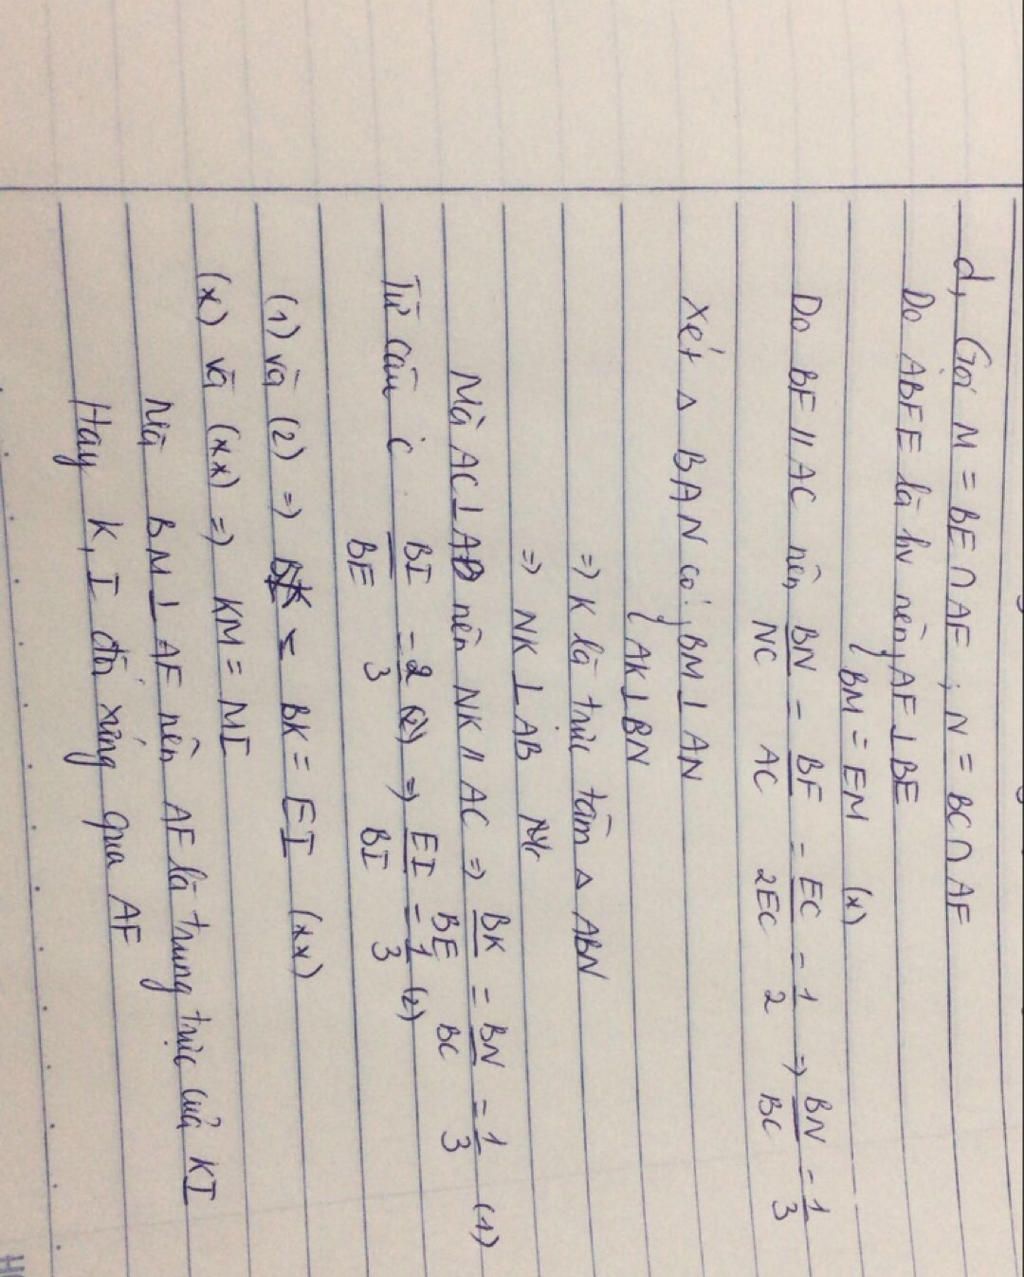 d, Gọi M = BE ∩ AF ; N = BC ∩ AF
Do ABFE là hv nên { AF ⊥ BE
BM = EM (x)
Do BF // AC nên BN/NC = BF/AC = EC/2EC = 1/2 => BN/BC = 1/3
Xét △ BAN có: { BM ⊥ AN
AK ⊥ BN
=> K là trực tâm △ ABN
=> NK ⊥ AB
Mà AC ⊥ AB nên NK // AC => BK/BE = BN/BC = 1/3 (1)
Từ câu c BI/BE = 2/3 (2) => EI/BI = 1/3 (2)
(1) và (2) => BK = EI (xx)
(x) và (xx) => KM = MI
Mà BM ⊥ AF nên AF là trung trực của KI
Hay K, I đối xứng qua AF